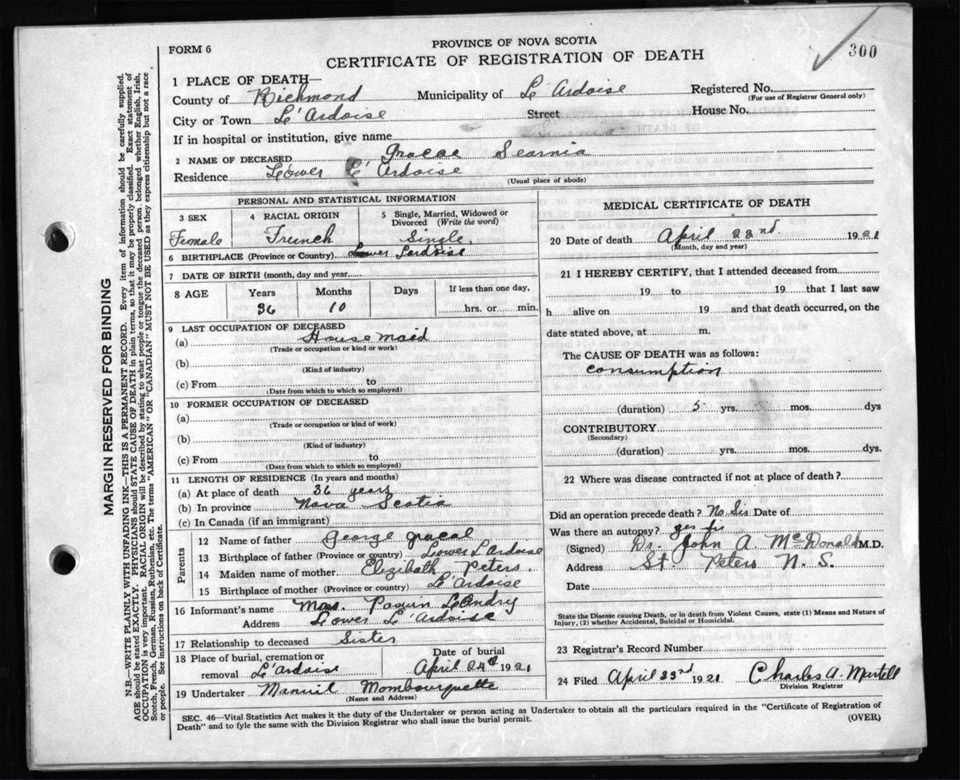 300
FORM 6
PROVINCE OF NOVA SCOTIA
CERTIFICATE OF REGISTRATION OF DEATH
1 PLACE OF DEATH—
County of Richmond Municipality of L'Ardoise Registered No.
(For use of Registrar General only)
City or Town L'Ardoise Street House No.
If in hospital or institution, give name
2 NAME OF DECEASED Gracae Searnia
Residence Lower L'Ardoise
(Usual place of abode)
MARGIN RESERVED FOR BINDING
N.B.—WRITE PLAINLY WITH UNFADING INK—THIS IS A PERMANENT RECORD. Every item of information should be carefully supplied.
AGE should be stated EXACTLY. PHYSICIANS should STATE CAUSE OF DEATH in plain terms, so that it may be properly classified. Exact statement of
OCCUPATION is very important. RACIAL ORIGIN will be described by stating to what people or tongue the deceased person belonged, whether English, Irish,
Scotch, French, German, Russian, Ruthenian, etc. The terms "AMERICAN" OR "CANADIAN" MUST NOT BE USED as they express citizenship but not a race
or people. See instructions on back of Certificate.
PERSONAL AND STATISTICAL INFORMATION
3 SEX 4 RACIAL ORIGIN 5 Single, Married, Widowed or
Divorced (Write the word)
Female French Single
6 BIRTHPLACE (Province or Country) Lower
7 DATE OF BIRTH (month, day and year)
8 AGE Years Months Days If less than one day,
36 10 hrs. or min.
9 LAST OCCUPATION OF DECEASED
(a) House maid
(Trade or occupation or kind or work)
(b)
(Kind of industry)
(c) From to
(Date from which to which so employed)
10 FORMER OCCUPATION OF DECEASED
(a)
(Trade or occupation or kind of work)
(b)
(Kind of industry)
(c) From to
(Date from which to which so employed)
11 LENGTH OF RESIDENCE (In years and months)
(a) At place of death 36 years
(b) In province Nova Scotia
(c) In Canada (if an immigrant)
Parents
12 Name of father George Gracal
13 Birthplace of father (Province or country) Lower L'Ardoise
14 Maiden name of mother Elizibath Peters
15 Birthplace of mother (Province or country) L'Ardoise
16 Informant's name Mrs. Paquin LeAndry
Address Lower L'Ardoise
17 Relationship to deceased Sister
18 Place of burial, cremation or Date of burial
removal L'Ardoise April 24th 1921
19 Undertaker Manuil Mombourquette
(Name and Address)
MEDICAL CERTIFICATE OF DEATH
20 Date of death April 22nd 1921
(Month, day and year)
21 I HEREBY CERTIFY, that I attended deceased from
19 to 19 that I last saw
h alive on 19 and that death occurred, on the
date stated above, at m.
The CAUSE OF DEATH was as follows:
consumption
(duration) 5 yrs. mos. dys
CONTRIBUTORY
(Secondary)
(duration) yrs. mos. dys.
22 Where was disease contracted if not at place of death?
Did an operation precede death? No Sir Date of
Was there an autopsy? yes
(Signed) Dr. John A. McDonald M.D.
Address St. Peters N. S.
Date
State the Disease causing Death, or in death from Violent Causes, state (1) Means and Nature of
Injury, (2) whether Accidental, Suicidal or Homicidal.
23 Registrar's Record Number
24 Filed April 23rd 1921 Charles A. Martell
Division Registrar
SEC. 46—Vital Statistics Act makes it the duty of the Undertaker or person acting as Undertaker to obtain all the particulars required in the "Certificate of Registration of
Death" and to fyle the same with the Division Registrar who shall issue the burial permit.
(OVER)